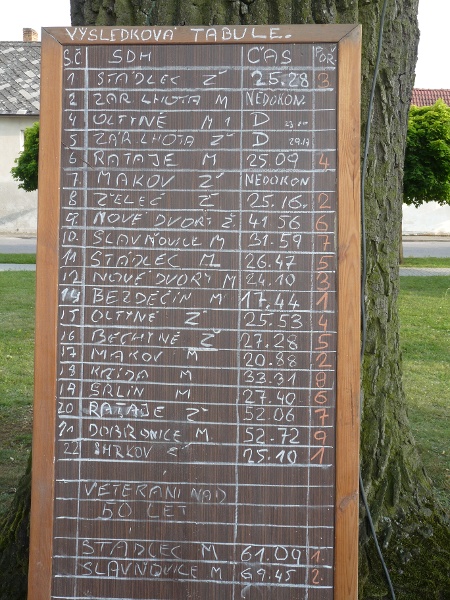 VÝSLEDKOVÁ TABULE.
SČ SDH ČAS POŘ
1 STÁDLEC Ž 25.28 3
2 ZÁR.LHOTA M NEDOKON.
4 OLTYNĚ M 1 D
5 ZÁR.LHOTA Ž D
6 RATAJE M 25.09 4
7 MAKOV Ž NEDOKON
8 ŽELEČ Ž 25.16. 2
9. NOVÉ DVORY Ž 41.56 6
10. SLAVŇOVICE M 31.59 7
11 STÁDLEC M 26.47 5
12 NOVÉ DVORY M 24.10 3
14 BEZDĚČÍN M 17.44 1
15 OLTYNĚ Ž 25.53 4
16 BECHYNĚ Ž 27.28 5
17 MAKOV M 20.88 2
18 M 33.31 8
19 SRLÍN M 27.40 6
20 RATAJE Ž 52.06 7
21 DOBRONICE M 52.72 9
22 Ž 25.10 1
VETERÁNI NAD
50 LET
STÁDLEC M 61.09 1.
SLAVŇOVICE M 69.45 2.